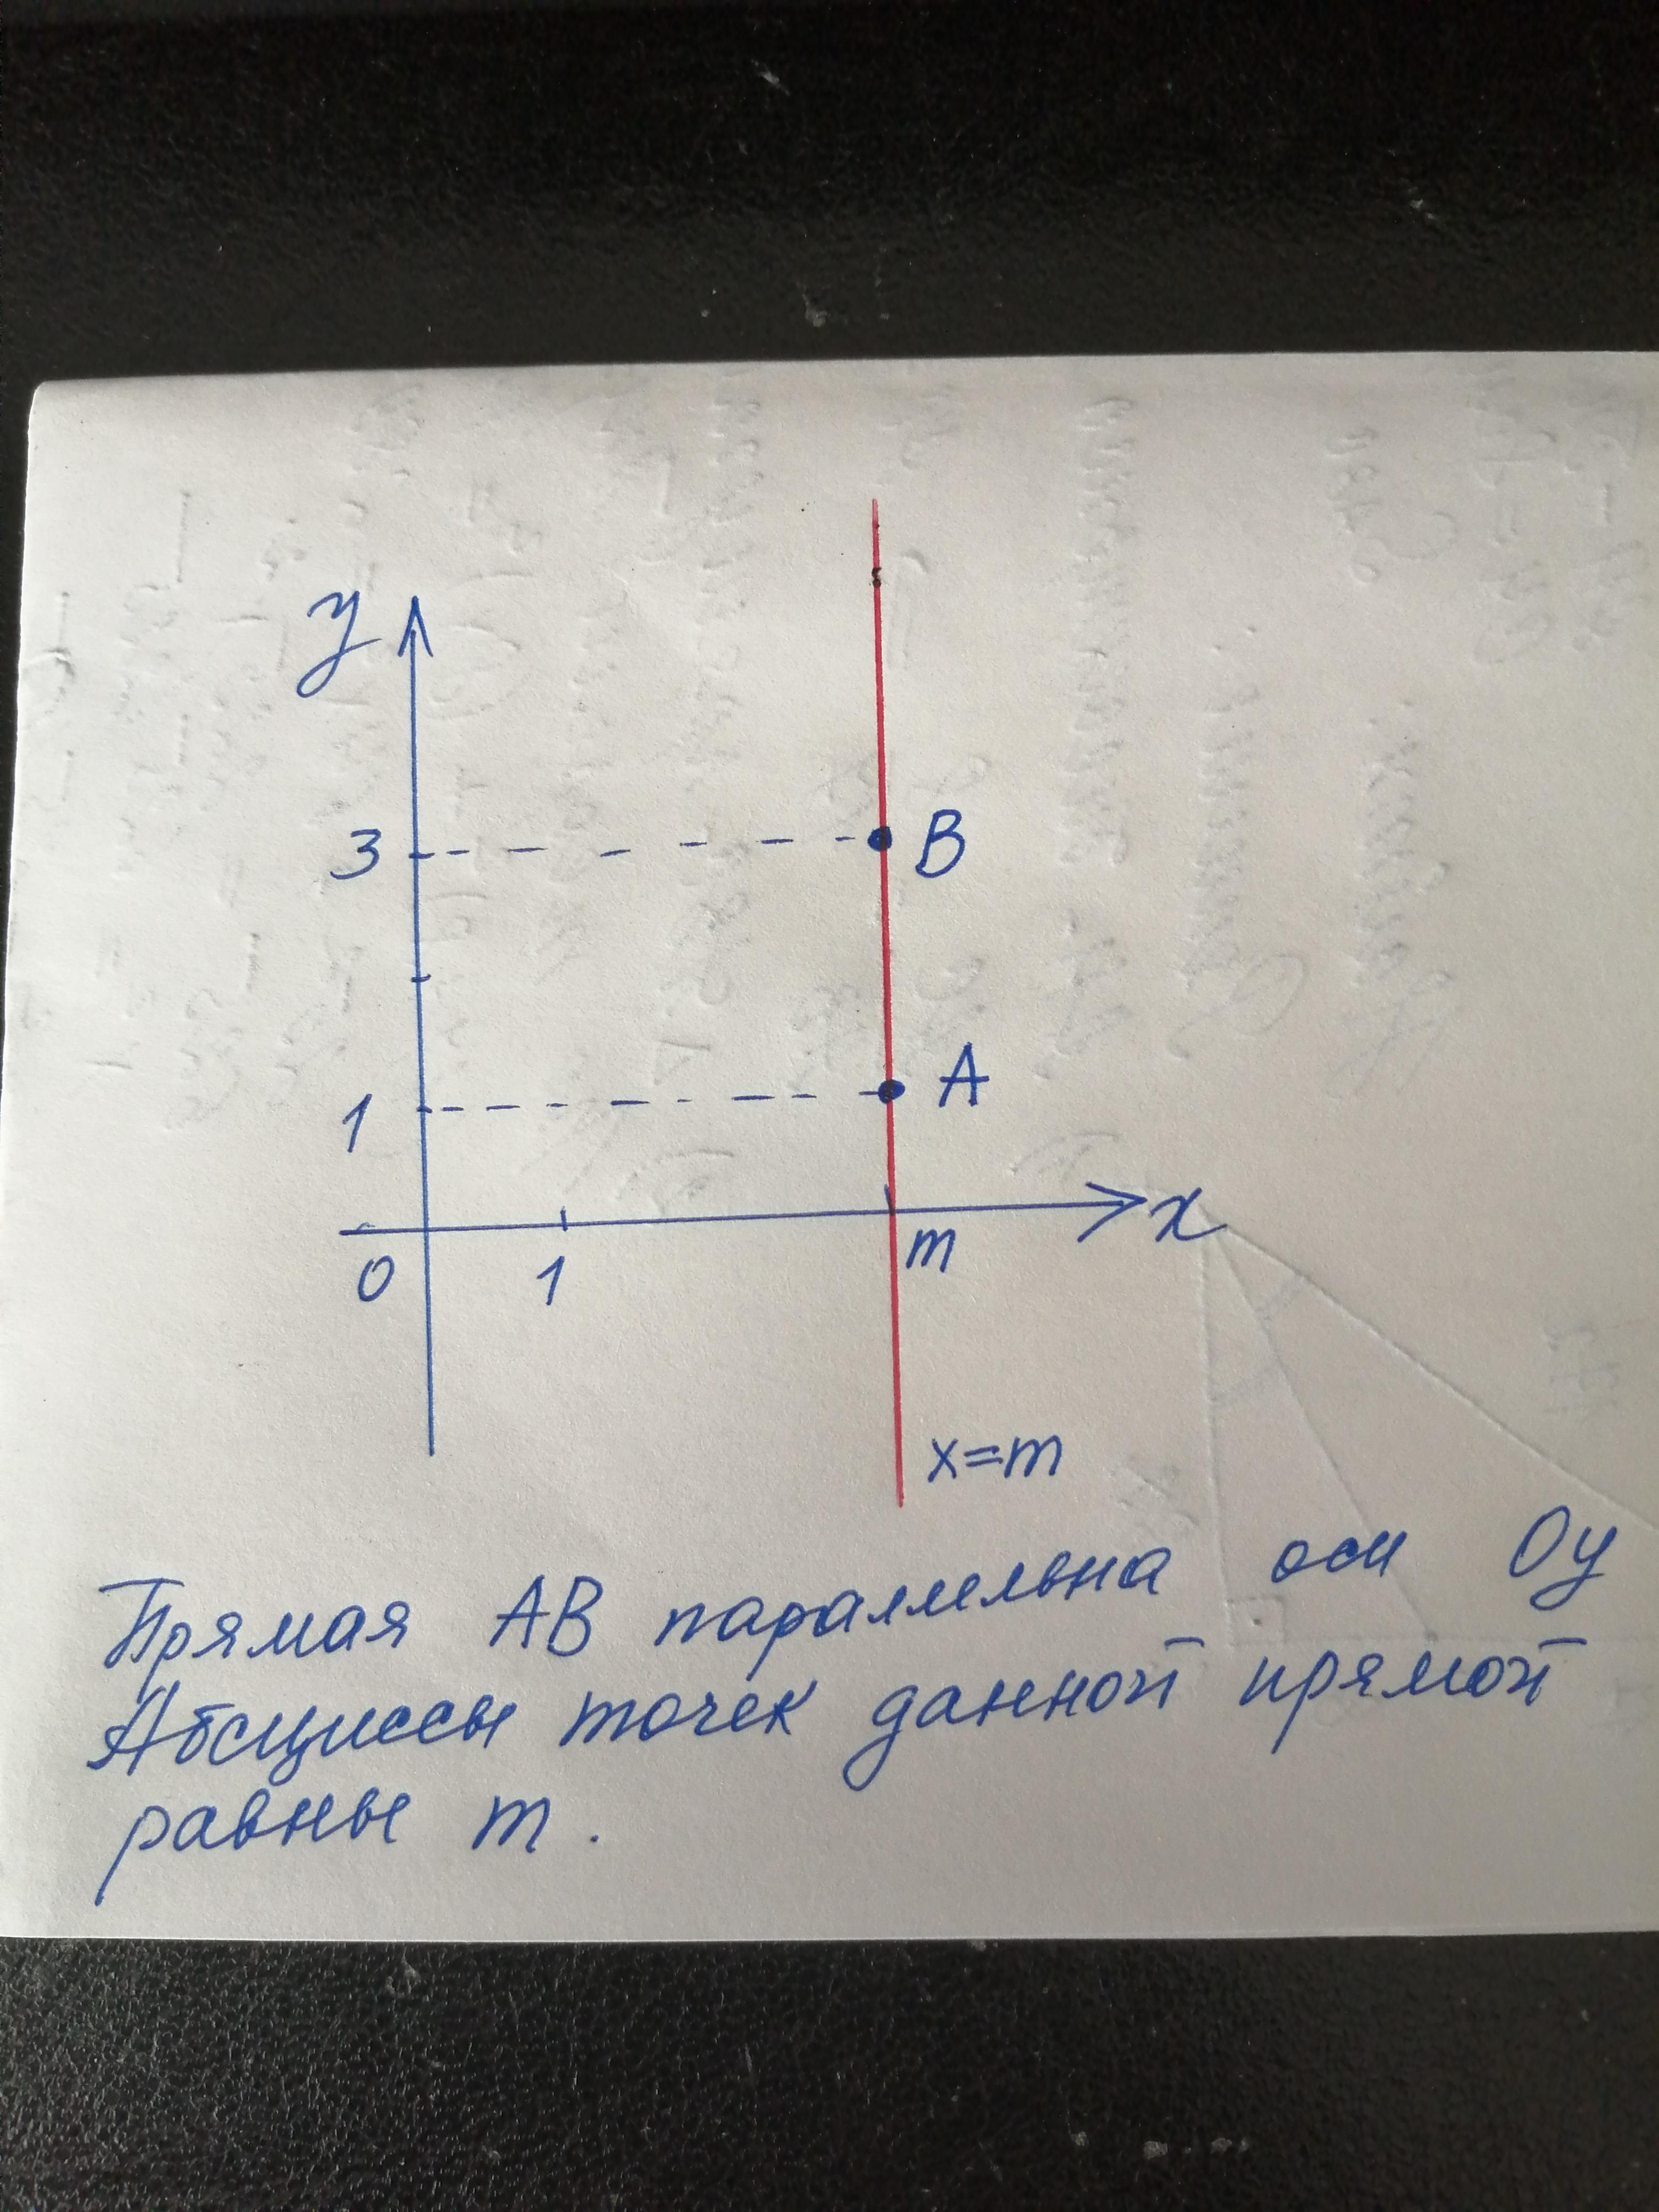 y
3
B
1
A
x
0
1
m
x=m
Прямая AB параллельна оси Oy
Абсциссы точек данной прямой
равны m.